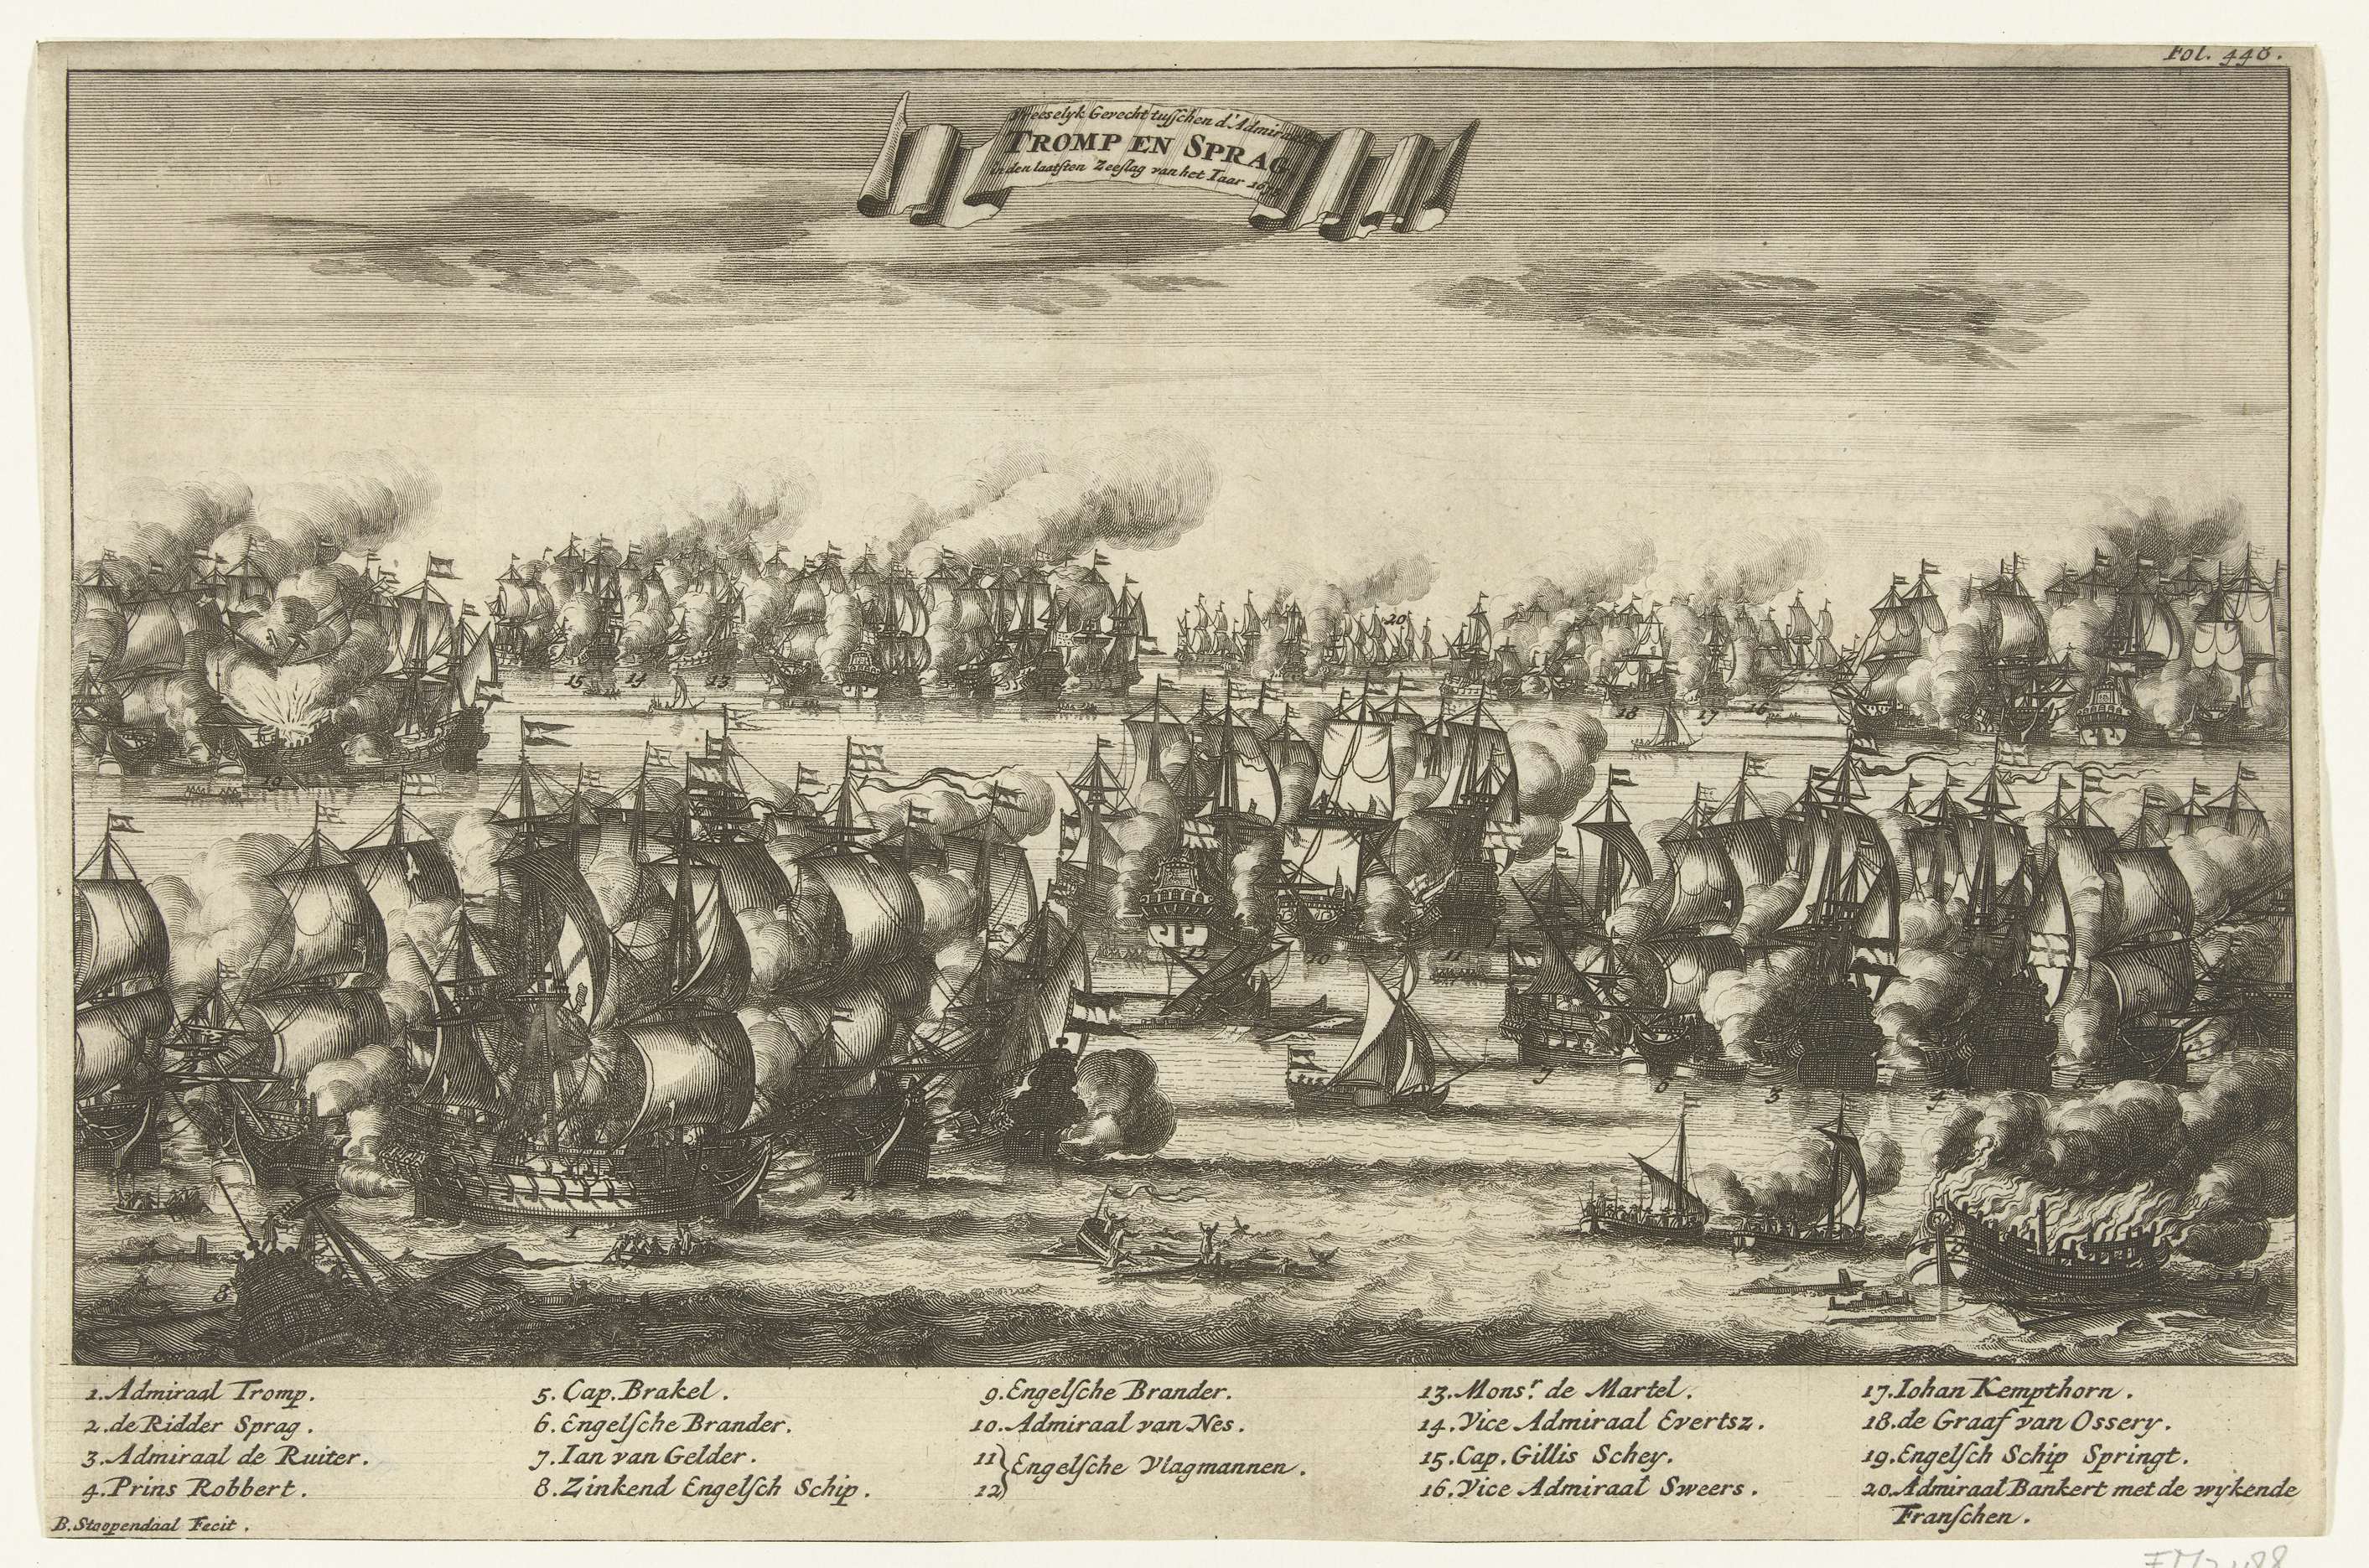 Fol. 448.
Vreeselyk Gevecht tusschen d'Admiraals
TROMP EN SPRAG
in den laatsten Zeeslag van het Iaar
15 14 13
20
18 17 16
19
12 10 11
7 6 3 4 5
2
1
8
9
1. Admiraal Tromp.
2. de Ridder Sprag.
3. Admiraal de Ruiter.
4. Prins Robbert.
5. Cap. Brakel.
6. Engelsche Brander.
7. Ian van Gelder.
8. Zinkend Engelsch Schip.
9. Engelsche Brander.
10. Admiraal van Nes.
11
12 } Engelsche Vlagmannen.
13. Monsr. de Martel.
14. Vice Admiraal Evertsz.
15. Cap. Gillis Schey.
16. Vice Admiraal Sweers.
17. Iohan Kempthorn.
18. de Graaf van Ossery.
19. Engelsch Schip Springt.
20. Admiraal Bankert met de wykende
Franschen.
B. Stoopendaal Fecit.